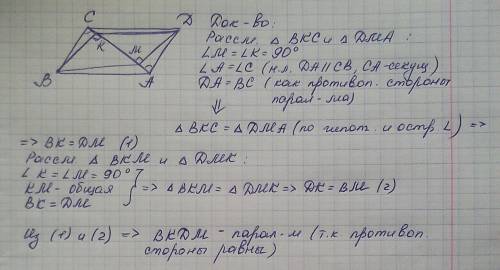 C D
K M
B A
Док-во:
Рассм. △ BKC и △ DMA :
∠M = ∠K = 90°
∠A = ∠C (н.л. DA∥CB, CA-секущ)
DA = BC (как противоп. стороны
парал-ма)
⇓
△ BKC = △ DMA (по гипот. и остр. ∠) =>
=> BK = DM (1)
Рассм △ BKM и △ DMK :
∠K = ∠M = 90°
KM - общая
BK = DM
} => △ BKM = △ DMK => DK = BM (2)
Из (1) и (2) => BKDM - парал-м (т.к. противоп.
стороны равны)